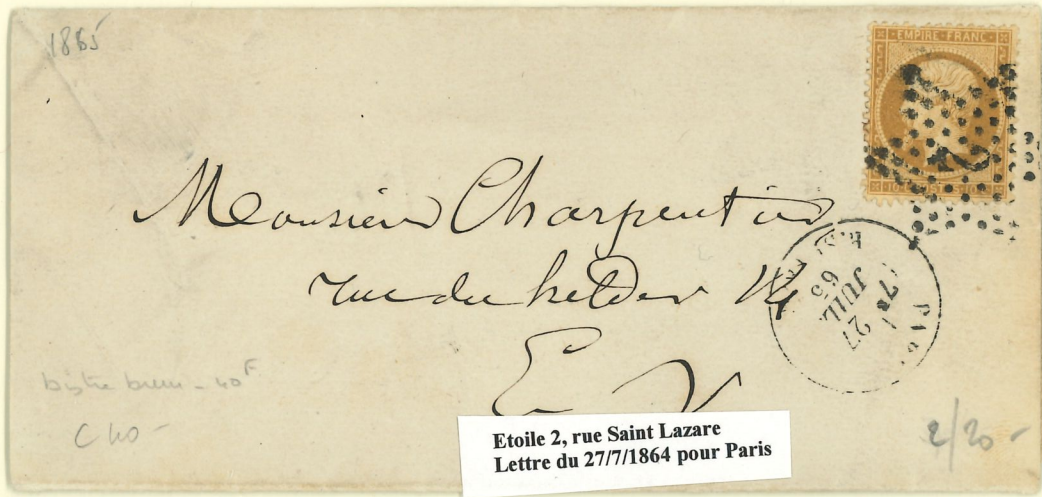 1865
EMPIRE FRANC
10 C POSTES 10 C
2
Monsieur Charpentier
rue du helder 14
E V
27
JUIL
65
bistre brun - 40F
C 40 -
2/20 -
Etoile 2, rue Saint Lazare
Lettre du 27/7/1864 pour Paris